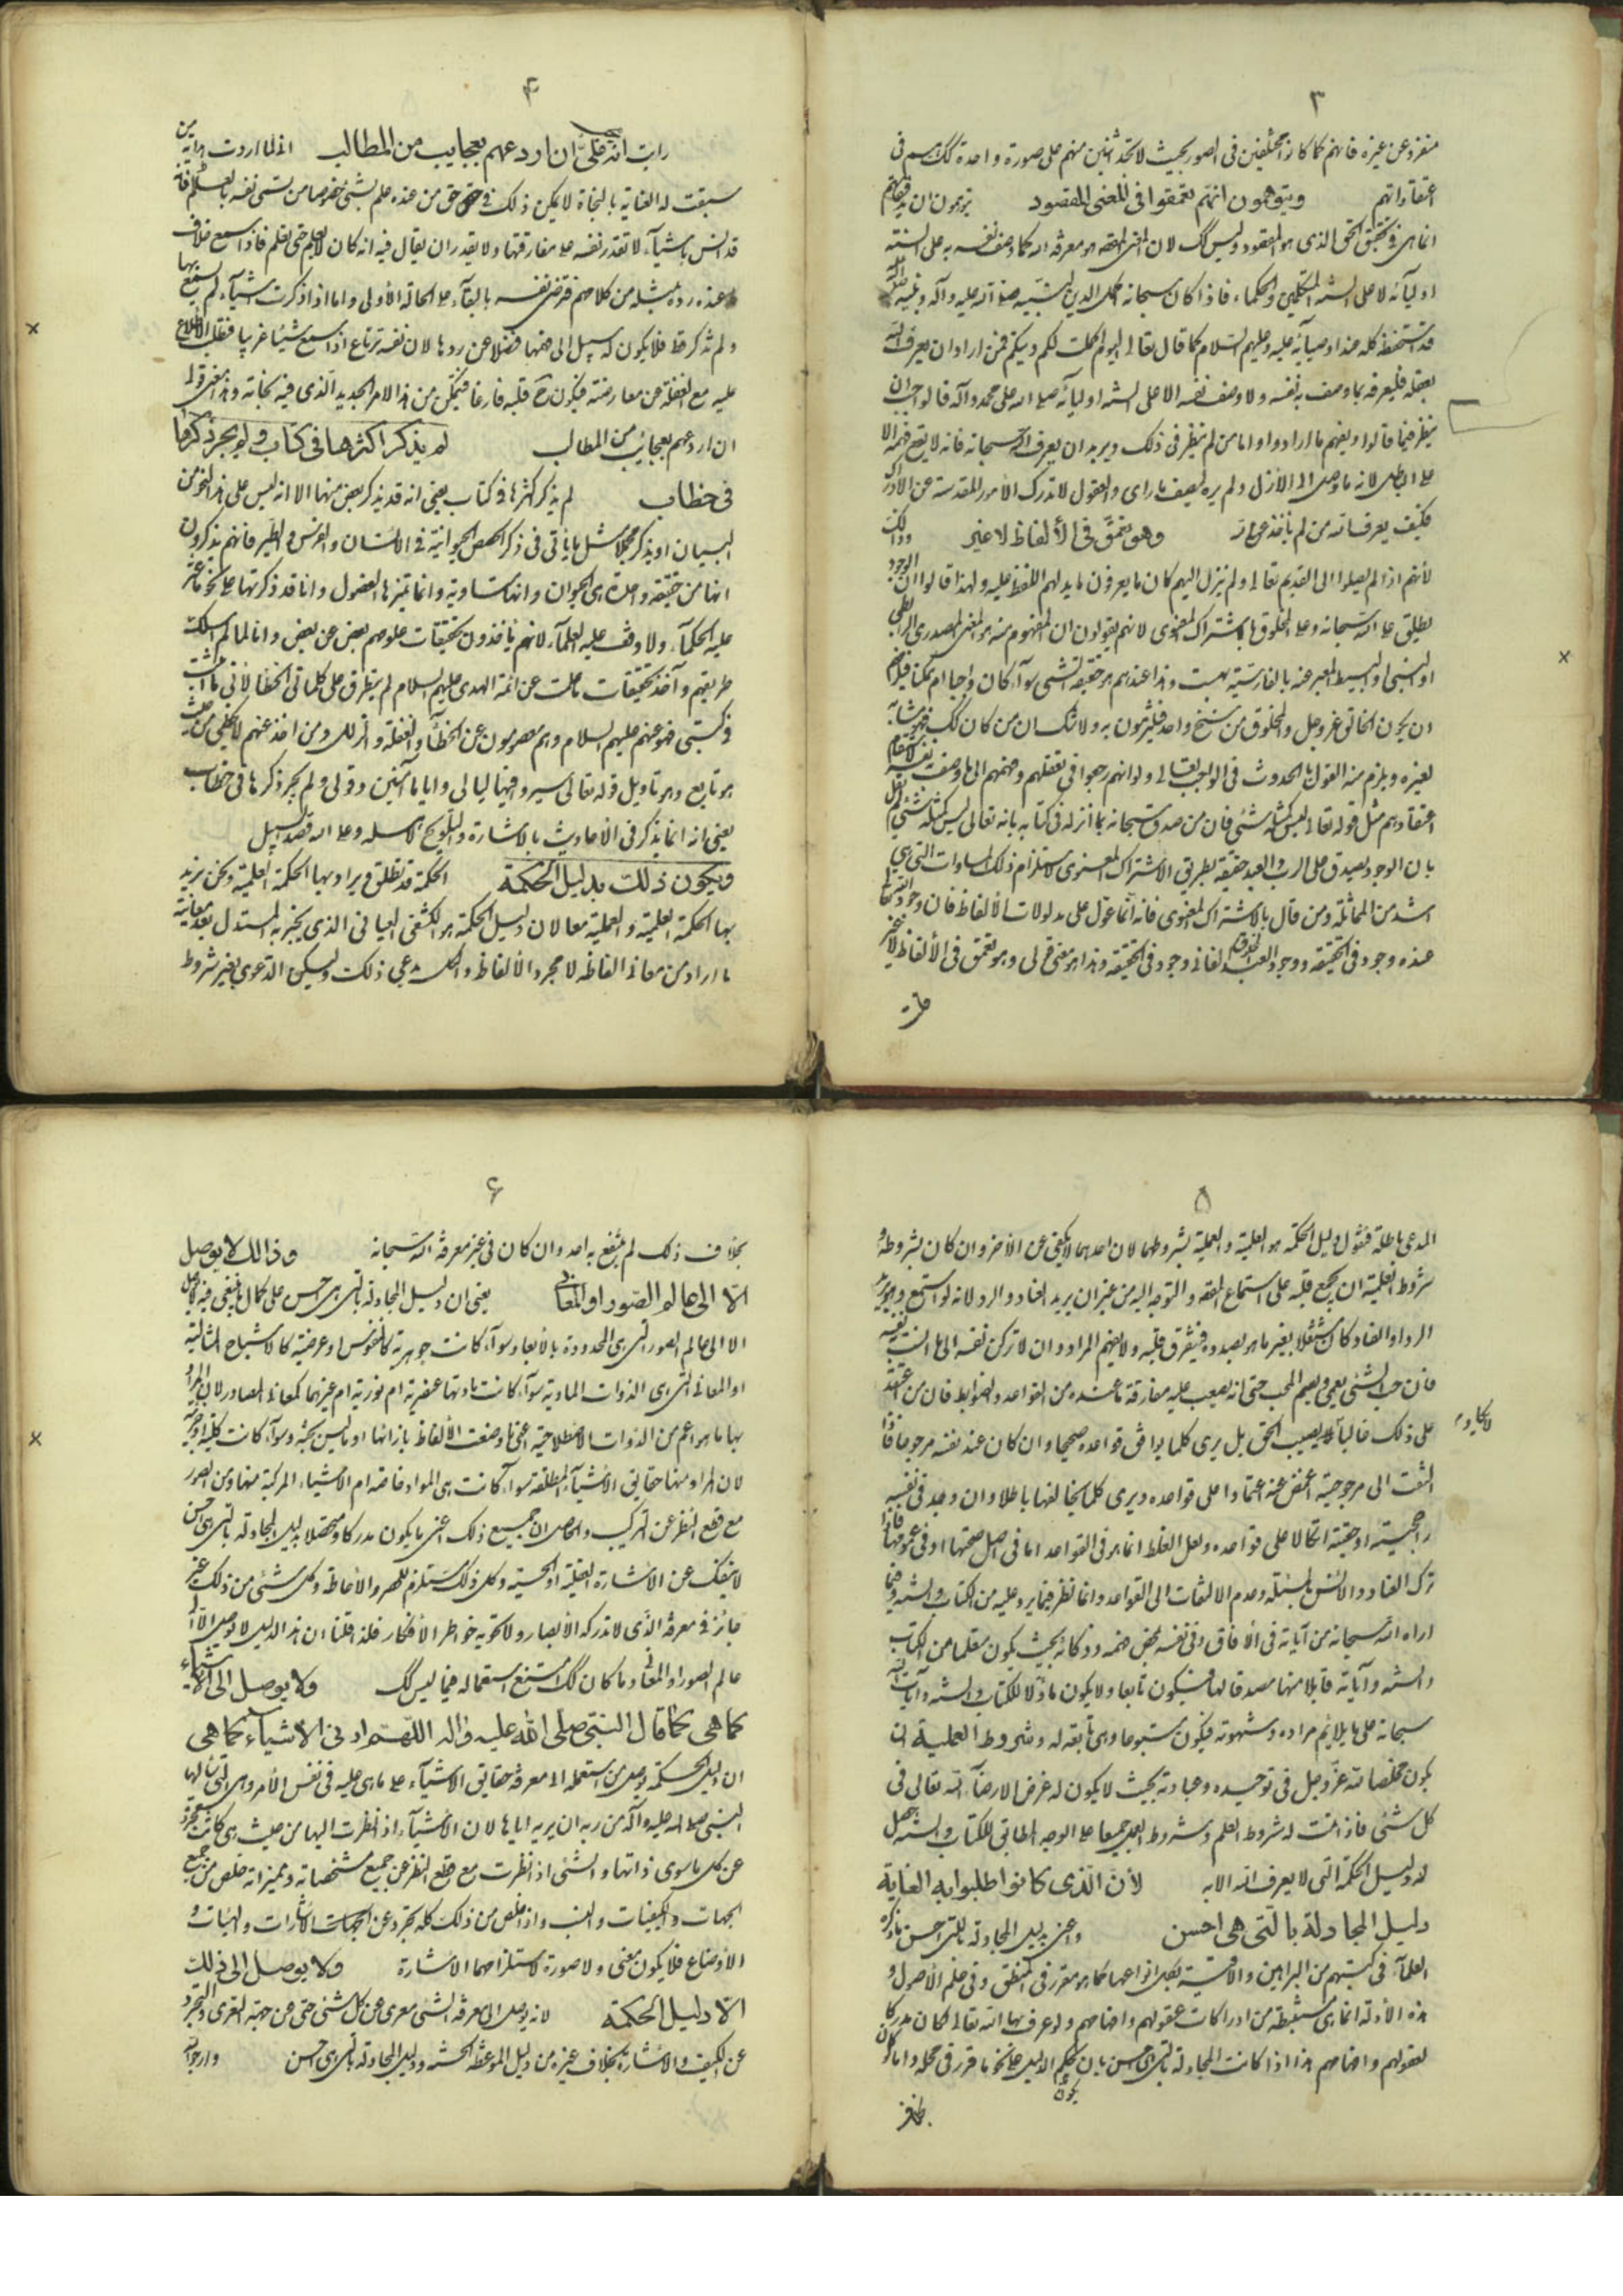 ٣
منفرد عن غيره فانهم كما كانوا مختلفين فى الصور بحيث لا تجد اثنين منهم على صورة واحدة كذلك هم فى
اعتقاداتهم ويتوهمون انهم تعمقوا فى المعنى المقصود يتوهمون ان
انما هى فى تحقيق الحق الذى هو المقصود وليس كك لان المعنى المقصود هو معرفة الله كما وصف نفسه به على السنة
اوليآئه لا على السنة المتكلمين والحكماء فاذا كان سبحانه اكمل الدين لنبيه صلى الله عليه وآله ونبيه
قد استحفظه كله عند اوصيآئه عليه وعليهم السلام كما قال تعالى اليوم اكملت لكم دينكم فمن اراد ان يعرف الله
بعقله فليعرفه بما وصف به نفسه ولا وصف نفسه الا على السنة اوليآئه صلى الله على محمد وآله فالواجب ان
ينظر فيما قالوا ويفهم ما ارادوا واما من لم ينظر فى ذلك ويريد ان يعرف الله سبحانه فانه لا يقع فهمه الا
على الباطل لانه ما وصل الى الازل ولم يره ليصف ما راى والعقول لا تدرك الأمور المقدسة عن الادراك
فكيف يعرف الله من لم يأخذ عن الله وهو يتعمق فى الألفاظ لا غير وذلك
لأنهم اذا لم يصلوا الى القديم تعالى ولم ينزل اليهم كان ما يعرفون ما يدلهم اللفظ عليه ولهذا قالوا ان الوجود
يطلق على الله سبحانه وعلى المخلوق بالاشتراك المعنوى لانهم يقولون ان المفهوم منه هو المعنى المصدرى الرابطى
او النسبى او البسيط المعبر عنه بالفارسية بهست وهذا عندهم هو حقيقة الشىء سوآء كان واجبا ام ممكنا فيلزم
ان يكون الخالق عز وجل والمخلوق من سنخ واحد فيلتزمون به ولا شك ان من كان كك فهو مشابه
لغيره ويلزم منه القول بالحدوث فى الواجب تعالى ولو انهم رجعوا فى تعقلهم وفهمهم الى ما وصف نفسه
اعتقادهم مثل قوله تعالى ليس كمثله شىء فان من صدق سبحانه بما انزله فى كتابه بانه تعالى ليس كمثله شىء لم يقل
بان الوجود يصدق على الرب والعبد حقيقة بطريق الاشتراك المعنوى لاستلزام ذلك المساوات التى هى
اشد من المماثلة ومن قال بالاشتراك المعنوى فانه انما عول على مدلولات الألفاظ فان وجود الله
عنده وجود فى الحقيقة ووجود العبد المخلوق وجود فى الحقيقة وهذا هو معنى قولى وهو يتعمق فى الألفاظ لا غير
٤
رايت انه على ان اردعهم بعجايب من المطالب انما اردت من
سبقت له العناية بالنجاة لا يمكن ذلك فى حق من عنده علم بشىء خصوصا من تسمى نفسه بالعلم فانه
قد انس باشيآء لا تقدر نفسه على مفارقتها ولا يقدر ان يقال فيه انه كان لا يعلم حتى تعلم فاذا سمع خلاف
ما عنده رده بمثله من كلامهم فترضى نفسه بالبقآء على الحالة الأولى واما اذا ذكرت اشيآء لم يسمع بها
ولم تذكر قط فلا يكون له سبيل الى فهمها فضلا عن ردها لان نفسه ترتاع اذا سمع شيئا غريبا فتطلب الاطلاع
عليه مع الغفلة عن معارضته فيكون ح قلبه فارغا فيتمكن من هذا الامر الجديد الذى فيه نجاته وهذا معنى قولى
ان اردعهم بعجائب من المطالب لم يذكر اكثرها فى كتاب ولم يجر ذكرها
فى خطاب لم يذكر اكثرها فى كتاب يعنى انه قد يذكر بعض منها الا انه ليس على هذا النحو من
البيان او يذكر مجملا مثل ما يأتى فى ذكر الحصص الحيوانية فى الانسان والفرس والطير فانهم يذكرون
انها من حقيقة واحدة هى الحيوان وانها متساوية وانما تميزها الفصول وانا قد ذكرتها على نحو ما عثر
عليه الحكمآء ولا وقف عليه العلمآء لانهم يأخذون تحقيقات علومهم بعض عن بعض وانا لما لم اسلك
طريقهم وآخذ تحقيقات ما علمت عن ائمة الهدى عليهم السلام لم يتطرق على كلماتى الخطا لانى ما اثبت
فى كتبى فهو عنهم عليهم السلام وهم معصومون عن الخطآء والغفلة والزلل ومن اخذ عنهم لا يخطى من حيث
هو تابع وهو تاويل قوله تعالى سيروا فيها ليالى واياما آمنين وقولى ولم يجر ذكرها فى خطاب
يعنى انه انما يذكر فى الأحاديث بالاشارة والتلويح لاهله وعلى الله قصد السبيل
ويكون ذلك بدليل الحكمة الحكمة قد تطلق ويراد بها الحكمة العلمية ونحن نريد
بها الحكمة العلمية والعملية معا لان دليل الحكمة هو الكشفى العيانى الذى يخبر به المستدل بعد معاينة
ما اراد من معانى الفاظه لا مجرد الألفاظ والكل يدعى ذلك ولكن الدعوى بغير شروط
٥
المدعى باطلة فنقول دليل الحكمة هو العلمية والعملية بشروطهما لان احدهما لا يكفى عن الأخر وان كان بشروطه و
شروط العلمية ان يجمع قلبه على استماع المقصد والتوجه اليه من غير ان يريد العناد والرد لانه لو استمع وهو يريد
الرد او العناد كان مشتغلا بغير ما هو بصدده فيتفرق قلبه ولا يفهم المراد وان لا تركن نفسه الى ما انست به نفسه
فان حب الشىء يعمى ويصم المحب حتى انه يصعب عليه مفارقة ما عنده من القواعد والضوابط فان من اعتمد
على ذلك غالبا لا يصيب الحق بل يرى كلما يوافق قواعده صحيحا وان كان عند نفسه مرجوحا فاذا
التفت الى مرجوحيته اغمض عنه اعتمادا على قواعده ويرى كلما يخالفها باطلا وان وجد فى نفسه
راجحيته او حقيته اتكالا على قواعده ولعل الغلط انما هو فى القواعد اما فى اصل صحتها او فى عمومها فاذا
ترك العناد والانس بالمسئلة وعدم الالتفات الى القواعد وانما نظر فيما يرد عليه من الكتاب والسنة وفيما
اراه الله سبحانه من آياته فى الأفاق وفى نفسه بمحض فهمه وذكائه بحيث يكون متعلما من الكتاب
والسنة وآياته قابلا منها مصدقا لها فيكون تابعا ولا يكون مأولا للكتاب والسنة وآيات الله
سبحانه على ما يلائم مراده وشهوته فيكون متبوعا وهى تابعة له وشروط العملية ان
يكون مخلصا لله عز وجل فى توحيده وعبادته بحيث لا يكون له غرض الا رضآء الله تعالى فى
كل شىء فاذا تمت له شروط العلم وشروط العمل جميعا على الوجه المطابق للكتاب والسنة حصل
له دليل الحكمة التى لا يعرف الله الا به لأن الذى كانوا طلبوا به الغاية
دليل المجادلة بالتى هى احسن واعنى بدليل المجادلة بالتى هى احسن ما ذكره
العلمآء فى كتبهم من البراهين والاقيسة بكل انواعها كما هو مقرر فى المنطق وفى علم الأصول و
هذه الأدلة انما هى مستنبطة من ادراكات عقولهم وافهامهم ولو عرف بها الله تعالى لكان مدركا
لعقولهم وافهامهم هذا اذا كانت المجادلة بالتى هى احسن بان يكون حكم الدليل على نحو ما قرر فى محله واما لو كان
٦
بخلاف ذلك لم ينتفع به احد وان كان فى غير معرفة الله سبحانه وذالك لا يوصل
الا الى عالم الصور او المعانى يعنى ان دليل المجادلة بالتى هى احسن على كمال ما ينبغى فيه لا يوصل
الا الى عالم الصور التى هى المحدودة بالأبعاد سوآء كانت جوهرية كالنفوس او عرضية كالاشباح المثالية
او المعانى التى هى الذوات المادية سوآء كانت مادتها عنصرية ام نورية ام غيرهما كمعانى المصادر لان المراد
بها ما هو اعم من الذوات الاصطلاحية اعنى ما وضعت الألفاظ بازائها او ما ليس بجثة وسوآء كانت كلية او جزئية
لان المراد منها حقايق الأشيآء المطلقة سوآء كانت هى المواد خاصة ام الأشياء المركبة منها ومن الصور
مع قطع النظر عن التركيب والحاصل ان جميع ذلك اعنى ما يكون مدركا ومتحصلا بدليل المجادلة بالتى هى احسن
لا ينفك عن الاشارة العقلية او الحسية وكل ذلك مستلزم للحصر والأحاطة وكل شىء من ذلك غير
جائز فى معرفة الذى لا تدركه الأبصار ولا تحويه خواطر الأفكار فلذا قلنا ان هذا الدليل لا يوصل الا الى
عالم الصور او المعانى وما كان كك امتنع استعماله فيما ليس كك ولا يوصل الى الاشياء
كما هى كما قال النبى صلى الله عليه واله اللهم ارنى الاشيآء كما هى
ان دليل الحكمة يوصل من استعمله الى معرفة حقايق الاشيآء على ما هى عليه فى نفس الأمر وهى التى سالها
النبى صلى الله عليه وآله من ربه ان يريه اياها لان الأشيآء اذا نظرت اليها من حيث هى كانت مجردة
عن كل ما سوى ذاتها والشىء اذا نظرت مع قطع النظر عن جميع مشخصاته ومميزاته خلص من جميع
الجهات والكيفيات والنسب واذا خلص من ذلك كله تجرد عن الجهات والاشارات والهيئات و
الأوضاع فلا يكون معنى ولا صورة لاستلزامهما الاشارة ولا يوصل الى ذلك
الا دليل الحكمة لانه يوصل الى معرفة الشىء معرى عن كل شىء حتى عن جهة التعرى والتجرد
عن الكيف والاشارة بخلاف غيره من دليل الموعظة الحسنة ودليل المجادلة بالتى هى احسن